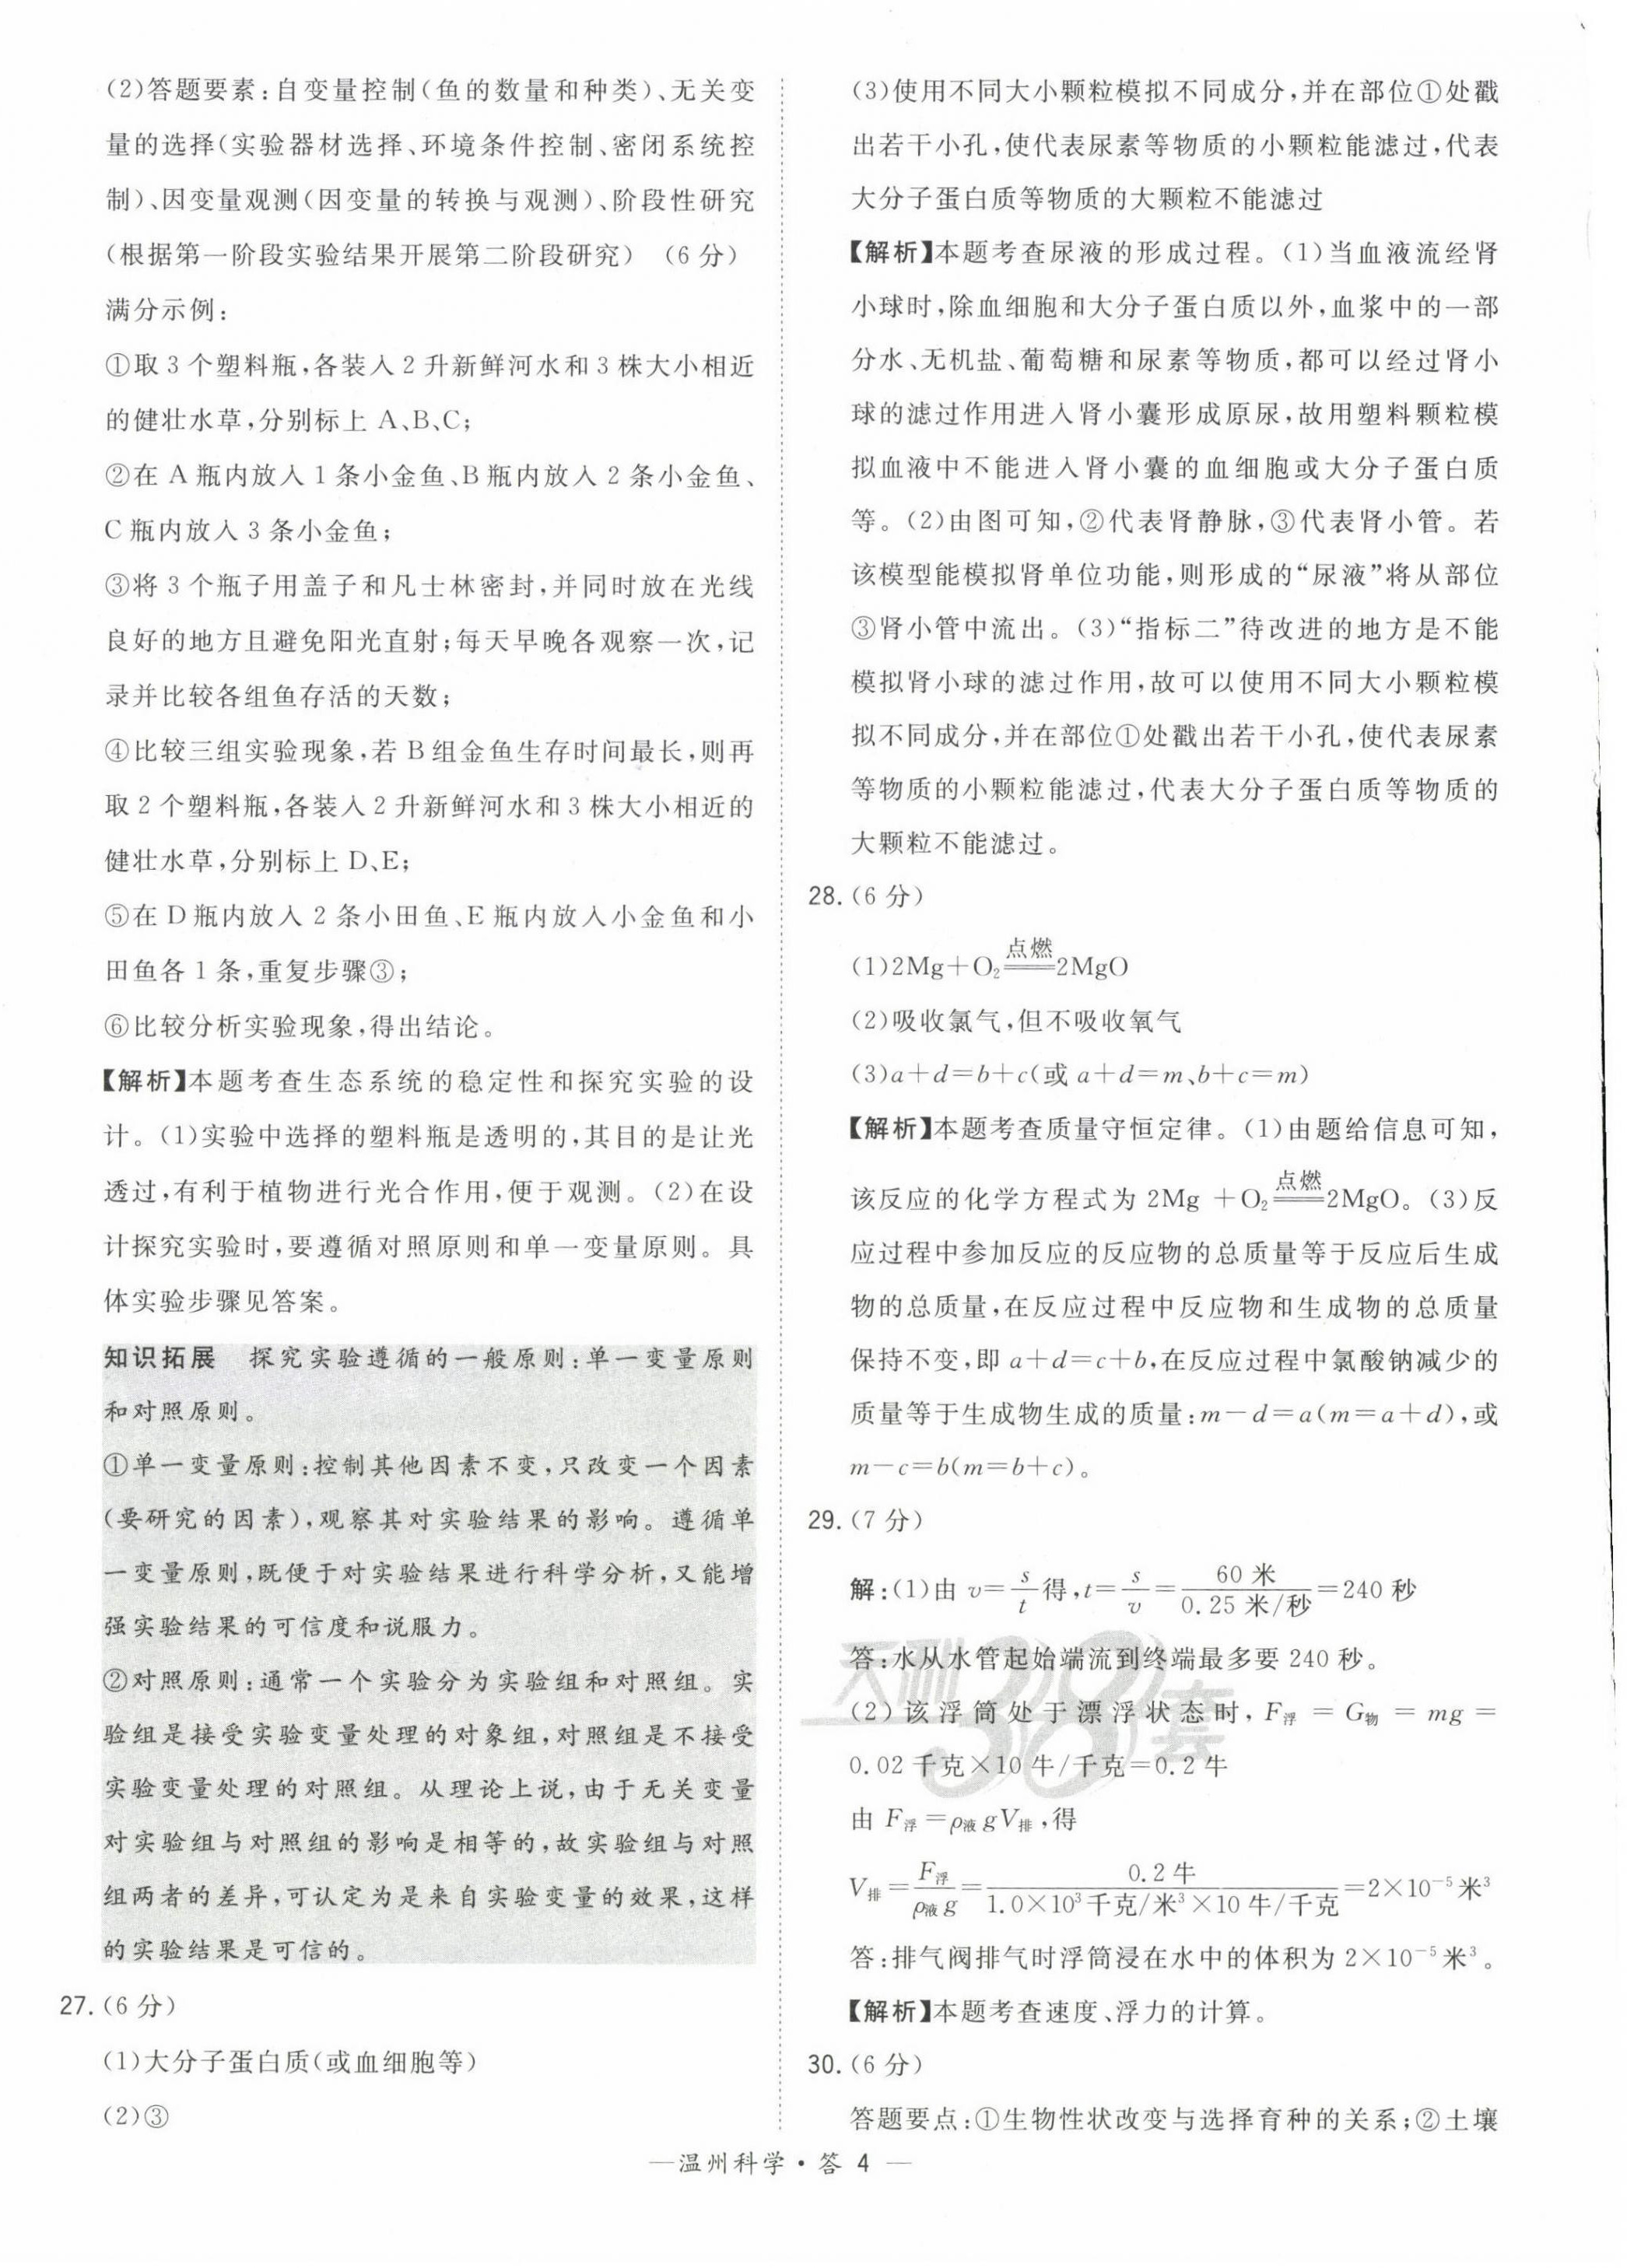 (2)答题要素:自变量控制(鱼的数量和种类)、无关变
量的选择(实验器材选择、环境条件控制、密闭系统控
制)、因变量观测(因变量的转换与观测)、阶段性研究
(根据第一阶段实验结果开展第二阶段研究) (6分)
满分示例:
①取3个塑料瓶,各装入2升新鲜河水和3株大小相近
的健壮水草,分别标上 A、B、C;
②在 A 瓶内放入1条小金鱼、B瓶内放入2条小金鱼、
C瓶内放入3条小金鱼;
③将3个瓶子用盖子和凡士林密封,并同时放在光线
良好的地方且避免阳光直射;每天早晚各观察一次,记
录并比较各组鱼存活的天数;
④比较三组实验现象,若B组金鱼生存时间最长,则再
取2个塑料瓶,各装入2升新鲜河水和3株大小相近的
健壮水草,分别标上 D、E;
⑤在D瓶内放入2条小田鱼、E瓶内放入小金鱼和小
田鱼各1条,重复步骤③;
⑥比较分析实验现象,得出结论。
【解析】本题考查生态系统的稳定性和探究实验的设
计。(1)实验中选择的塑料瓶是透明的,其目的是让光
透过,有利于植物进行光合作用,便于观测。(2)在设
计探究实验时,要遵循对照原则和单一变量原则。具
体实验步骤见答案。
知识拓展 探究实验遵循的一般原则:单一变量原则
和对照原则。
①单一变量原则:控制其他因素不变,只改变一个因素
(要研究的因素),观察其对实验结果的影响。遵循单
一变量原则,既便于对实验结果进行科学分析,又能增
强实验结果的可信度和说服力。
②对照原则:通常一个实验分为实验组和对照组。实
验组是接受实验变量处理的对象组,对照组是不接受
实验变量处理的对照组。从理论上说,由于无关变量
对实验组与对照组的影响是相等的,故实验组与对照
组两者的差异,可认定为是来自实验变量的效果,这样
的实验结果是可信的。
27.(6分)
(1)大分子蛋白质(或血细胞等)
(2)③
(3)使用不同大小颗粒模拟不同成分,并在部位①处戳
出若干小孔,使代表尿素等物质的小颗粒能滤过,代表
大分子蛋白质等物质的大颗粒不能滤过
【解析】本题考查尿液的形成过程。(1)当血液流经肾
小球时,除血细胞和大分子蛋白质以外,血浆中的一部
分水、无机盐、葡萄糖和尿素等物质,都可以经过肾小
球的滤过作用进入肾小囊形成原尿,故用塑料颗粒模
拟血液中不能进入肾小囊的血细胞或大分子蛋白质
等。(2)由图可知,②代表肾静脉,③代表肾小管。若
该模型能模拟肾单位功能,则形成的“尿液”将从部位
③肾小管中流出。(3)“指标二”待改进的地方是不能
模拟肾小球的滤过作用,故可以使用不同大小颗粒模
拟不同成分,并在部位①处戳出若干小孔,使代表尿素
等物质的小颗粒能滤过,代表大分子蛋白质等物质的
大颗粒不能滤过。
28.(6分)
(1)2Mg+O₂ 点燃══ 2MgO
(2)吸收氯气,但不吸收氧气
(3)a+d=b+c(或 a+d=m、b+c=m)
【解析】本题考查质量守恒定律。(1)由题给信息可知,
该反应的化学方程式为 2Mg +O₂ 点燃══ 2MgO。(3)反
应过程中参加反应的反应物的总质量等于反应后生成
物的总质量,在反应过程中反应物和生成物的总质量
保持不变,即 a+d=c+b,在反应过程中氯酸钠减少的
质量等于生成物生成的质量:m-d=a(m=a+d),或
m-c=b(m=b+c)。
29.(7分)
解:(1)由 v=s/t 得,t=s/v=60米/0.25米/秒=240秒
答:水从水管起始端流到终端最多要240秒。
(2)该浮筒处于漂浮状态时,F浮 = G物 = mg =
0.02千克×10牛/千克=0.2牛
由 F浮=ρ液gV排,得
V排=F浮/ρ液g=0.2牛/1.0×10³千克/米³×10牛/千克=2×10⁻⁵米³
答:排气阀排气时浮筒浸在水中的体积为2×10⁻⁵米³。
【解析】本题考查速度、浮力的计算。
30.(6分)
答题要点:①生物性状改变与选择育种的关系;②土壤
天利38套
—温州科学·答 4 —